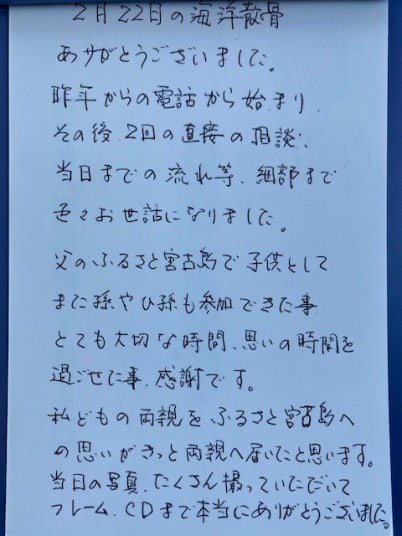 2月22日の海洋散骨
ありがとうございました。
昨年からの電話から始まり
その後、2回の直接の相談、
当日までの流れ等、細部まで
色々お世話になりました。
父のふるさと宮古島で子供として
また孫やひ孫も参加できた事
とても大切な時間、思いの時間を
過ごせた事、感謝です。
私どもの両親を、ふるさと宮古島へ
の思いがきっと両親へ届いたと思います。
当日の写真、たくさん撮っていただいて
フレーム、CDまで本当にありがとうございました。